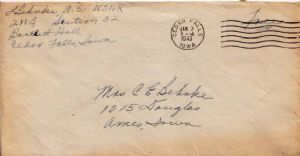 Behnke A.S. USNR
2113 Section 32
Bartlett Hall
Cedar Falls, Iowa
CEDAR FALLS
IOWA
JAN 3
1943
Free
Mrs C E Behnke
1015 Douglas
Ames, Iowa